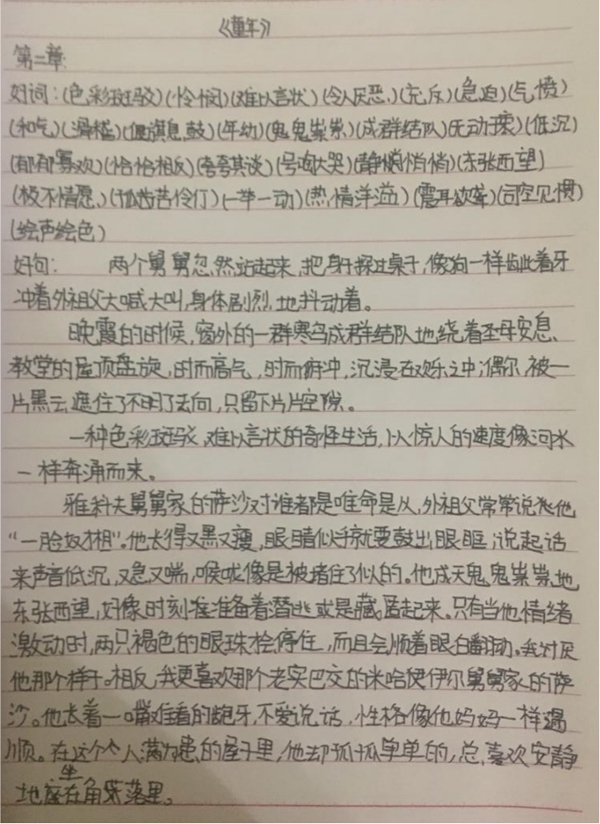 《童年》
第二章
好词：(色彩斑驳)(怜悯)(难以言状)(令人厌恶)(充斥)(急迫)(气愤)
(和气)(滑稽)(偃旗息鼓)(年幼)(鬼鬼祟祟)(成群结队)(无动于衷)(低沉)
(郁郁寡欢)(恰恰相反)(夸夸其谈)(号啕大哭)(静悄悄)(东张西望)
(极不情愿)(孤苦伶仃)(一举一动)(热情洋溢)(震耳欲聋)(司空见惯)
(绘声绘色)
好句： 两个舅舅忽然站起来，把身子探过桌子，像狗一样龇着牙
冲着外祖父大喊大叫，身体剧烈地抖动着。
晚霞的时候，窗外的一群寒鸟成群结队地绕着圣母安息
教堂的屋顶盘旋，时而高飞，时而俯冲，沉浸在欢乐之中；偶尔被一
片黑云遮住了不明了去向，只留下片片空隙。
一种色彩斑驳，难以言状的奇怪生活，以惊人的速度像河水
一样奔涌而来。
雅科夫舅舅家的萨沙对谁都是唯命是从，外祖父常常说他
“一脸奴相”。他长得又黑又瘦，眼睛似乎就要鼓出眼眶，说起话
来声音低沉，又急又喘，喉咙像是被堵住了似的。他成天鬼鬼祟祟地
东张西望，好像时刻准备着潜逃或是藏匿起来。只有当他情绪
激动时，两只褐色的眼珠停住，而且会顺着眼白翻动。我讨厌
他那个样子。相反，我更喜欢那个老实巴交的米哈伊尔舅舅家的萨
沙。他长着一嘴难看的龅牙，不爱说话，性格像他妈妈一样温
顺。在这个人满为患的屋子里，他却孤孤单单的，总喜欢安静
地坐在角落里。